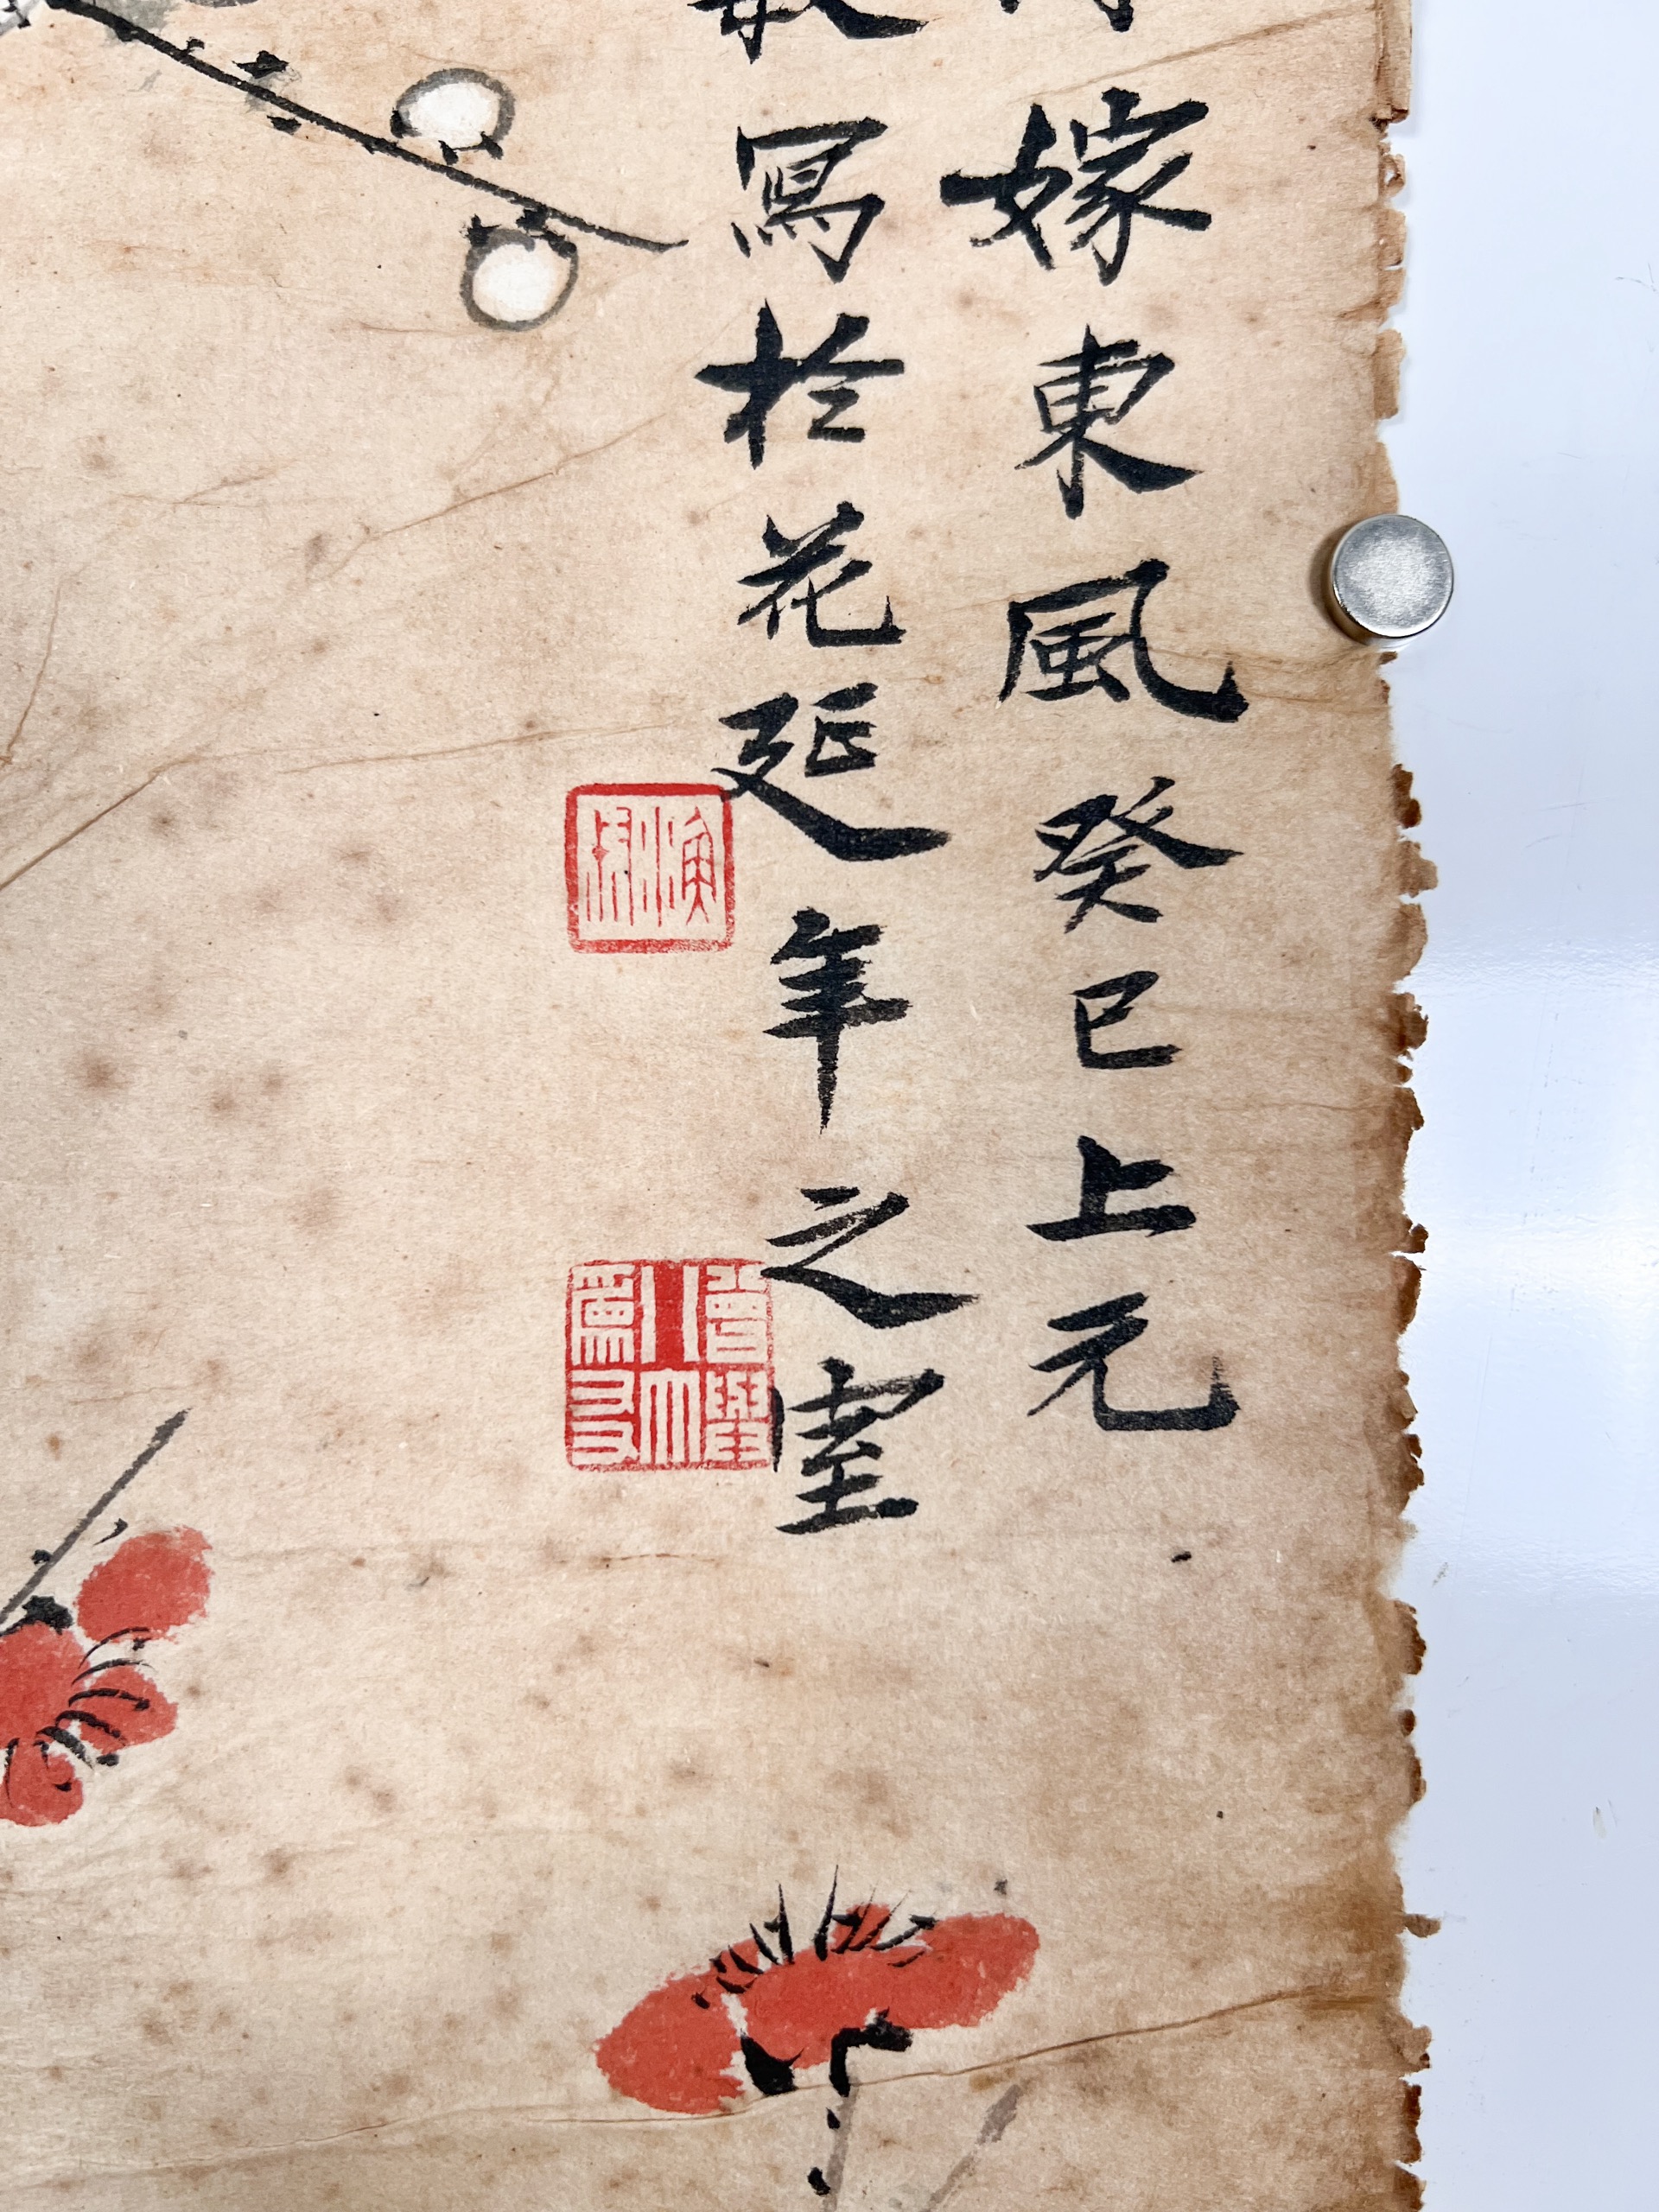 嫁東風癸巳上元
寫於花延年之室